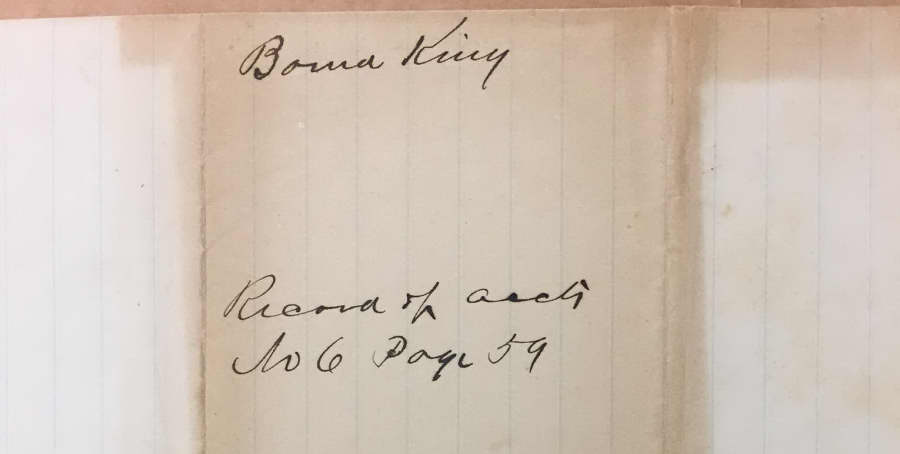 Bound King
Record of accts
No 6 Page 59